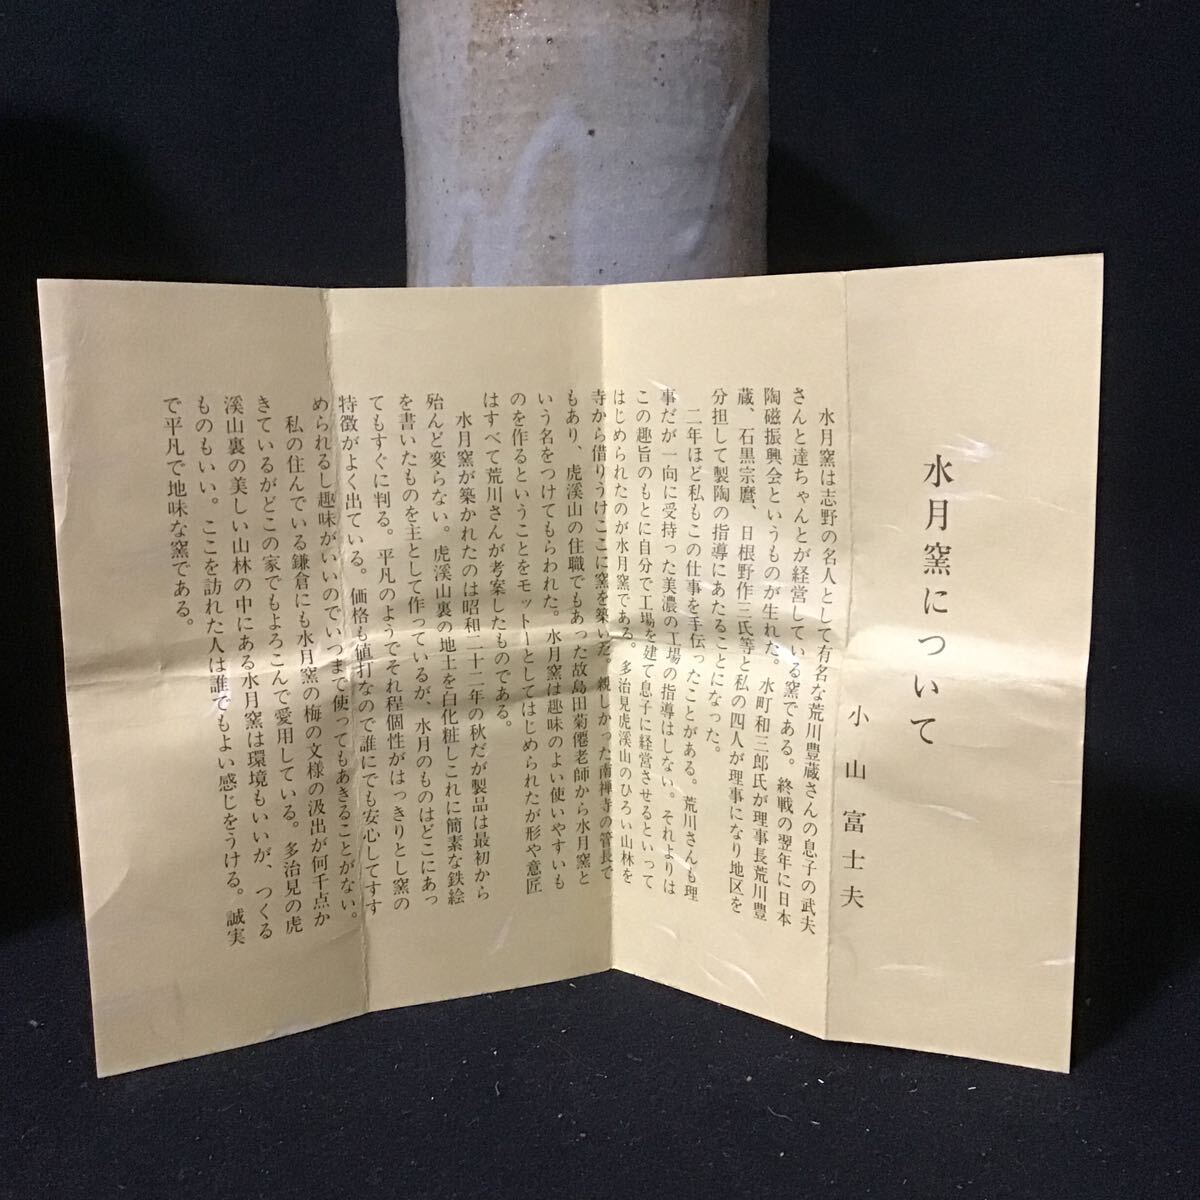 水月窯について
小山富士夫
水月窯は志野の名人として有名な荒川豊蔵さんの息子の武夫
さんと達ちゃんとが経営している窯である。終戦の翌年に日本
陶磁振興会というものが生れた。水町和三郎氏が理事長荒川豊
蔵、石黒宗麿、日根野作三氏等と私の四人が理事になり地区を
分担して製陶の指導にあたることになった。
二年ほど私もこの仕事を手伝ったことがある。荒川さんも理
事だが一向に受持った美濃の工場の指導はしない。それよりは
この趣旨のもとに自分で工場を建て息子に経営させるといって
はじめられたのが水月窯である。多治見虎溪山のひろい山林を
寺から借りうけここに窯を築いた。親しかった南禅寺の管長で
もあり、虎溪山の住職でもあった故島田菊僊老師から水月窯と
いう名をつけてもらわれた。水月窯は趣味のよい使いやすいも
のを作るということをモットーとしてはじめられたが形や意匠
はすべて荒川さんが考案したものである。
水月窯が築かれたのは昭和二十二年の秋だが製品は最初から
殆んど変らない。虎溪山裏の地土を白化粧しこれに簡素な鉄絵
を書いたものを主として作っているが、水月のものはどこにあっ
てもすぐに判る。平凡のようでそれ程個性がはっきりとし窯の
特徴がよく出ている。価格も値打なので誰にでも安心してすす
められるし趣味がいいのでいつまで使ってもあきることがない。
私の住んでいる鎌倉にも水月窯の梅の文様の汲出が何千点か
きているがどこの家でもよろこんで愛用している。多治見の虎
溪山裏の美しい山林の中にある水月窯は環境もいいが、つくる
ものもいい。ここを訪れた人は誰でもよい感じをうける。誠実
で平凡で地味な窯である。